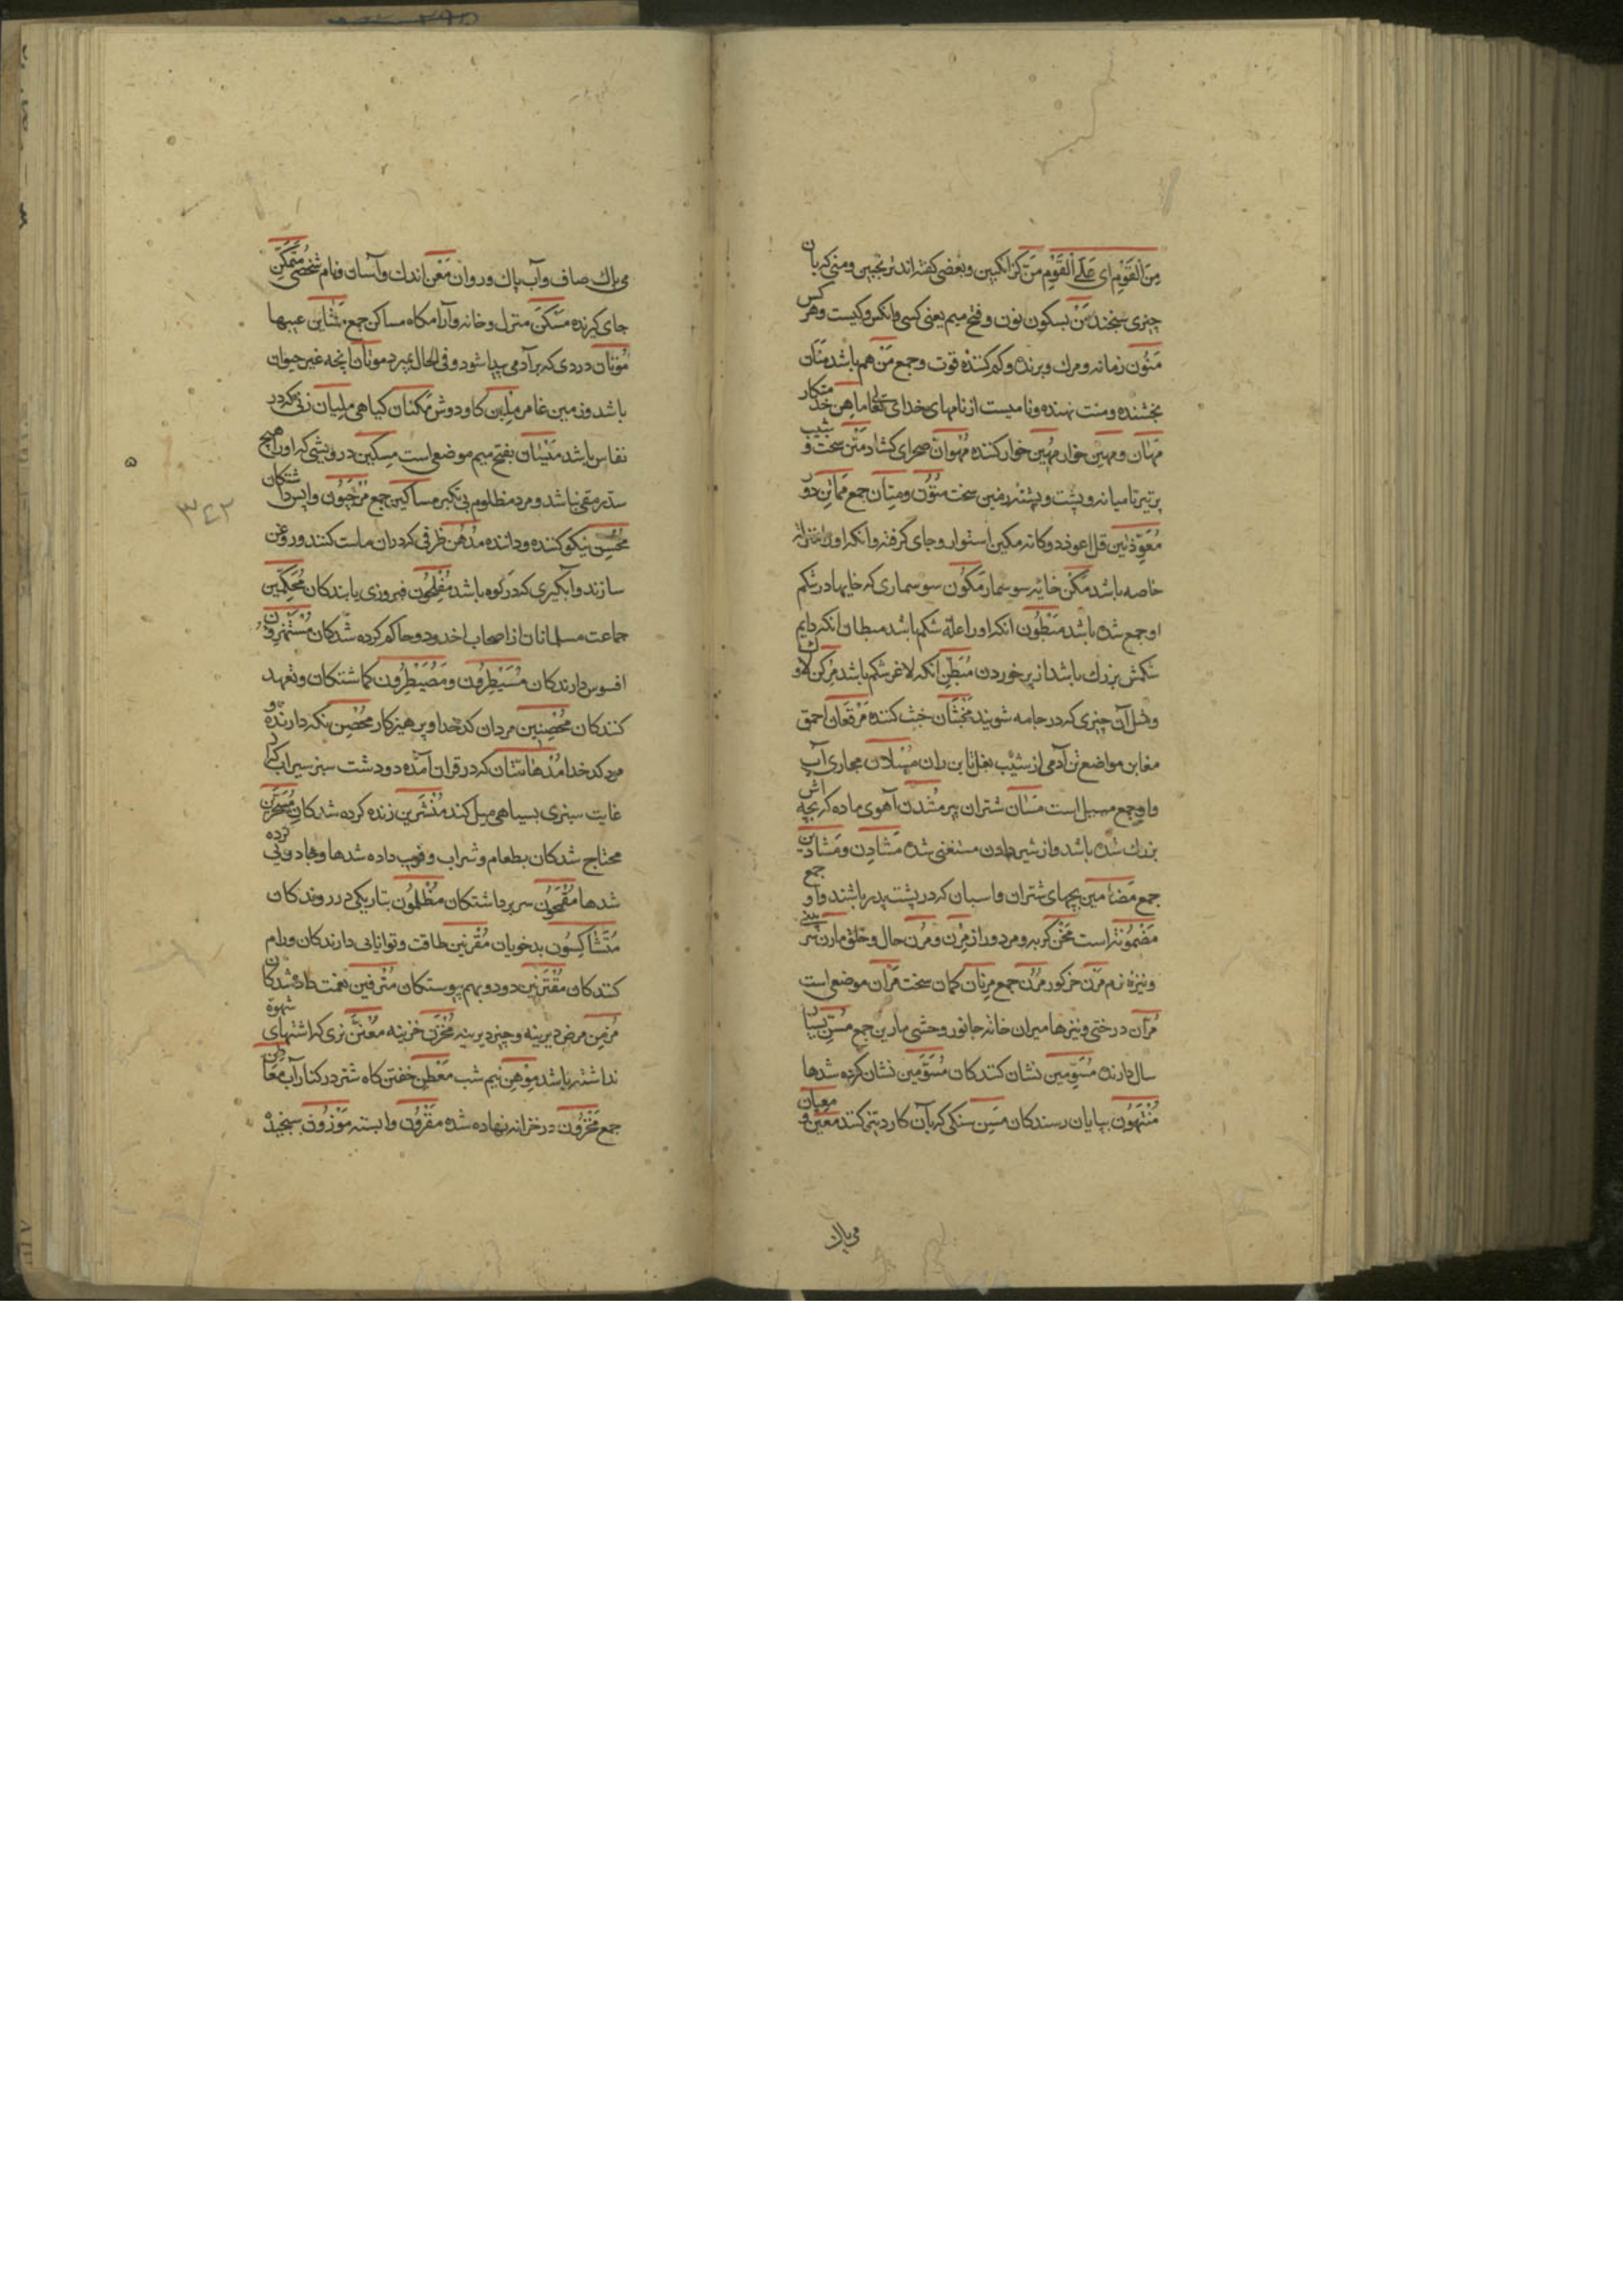 مِنَ الْقَوْمِ ای عَلَی الْقَوْمِ مَنّ کزانکبین و بعضی کفته‌اند ترنجبین و منی که بان
چیزی سنجند مَنْ بسکون نون و فتح میم یعنی کسی و انکس و کیست و هر کس
مَنُون زمانه و مرك و برنده و کم کننده قوت و جمع مَنّ هم باشد مَنّان
بخشنده و منت نهنده و نامیست از نامهای خدای تعالی ماهِن خدمتکار
مَهان و مهین خوار مُهین خوار کننده مُهْوانّ صحرای کشاد مَتْن سخت و شیب
پر تیر تا میانه و پشت و پشته زمین سخت مُتُون و مِتان جمع
مُعَوِّذَتین قل اعوذ دوکانه مکین استوار و جای کرفته و انکه او را منزلتی
خاصه باشد مَکْن خایه سوسمار مَکُون سوسماری که خایها در شکم
او جمع شده باشد مَبْطُون انکه او را علة شکم باشد مبطان انکه دایم
شکمش بزرك باشد از پر خوردن مُبَطَّن انکه لاغر شکم باشد مِرْکَن لاوك
و مثل آن چیزی که در جامه شویند مَخْبَثان خبث کننده مَرْقَعان احمق
مغابن مواضع تن آدمی از شیب بغل تا بن ران مُسْلان مجاری آب
و او جمع مسیل است مَسانّ شتران پیر مُشْدِن آهوی ماده که بچه اش
بزرك شده باشد و از شیر دادن مستغنی شده مَشادِن و مَشادین
جمع مَضامین بچهای شتران و اسبان که در پشت پدر باشند و او جمع
مَضْمُونَة است مَخْن کریه و مرد دراز مَرْن و مَرِن حال و خلق مارِن سر بینی
و نیزه نرم مَرْن خز کور مُرُن جمع مِرْنان کمان سخت مَرّان موضعی است
مُرّان درختی و نیزها میران خانه جانور وحشی مارین جمع مُسِنّ بسیار
سال دارنده مُسَوِّمین نشان کنندکان مُسَوَّمین نشان کرده شدها
مُنْتَهُون بپایان رسندکان مِسَنّ سنکی که بآن کارد تیز کنند مَعین و معیان
می پاك
می پاك صاف و آب پاك و روان مَعْن اندك و آسان و نام شخصی مُتَمَکِّن
جای کیرنده مَسْکَن منزل و خانه و آرامکاه مساکن جمع مَشاین عیبها
مُوتان دردی که بر آدمی پیدا شود و فی الحال بمیرد موتان انچه غیر حیوان
باشد و زمین غامر مَلِبن کاودوش مَکْنان کیاهی مِلْیان زنی که در
نفاس باشد مَیْسان بفتح میم موضعی است مِسکین درویشی که او را هیچ
سد رمقی نباشد و مرد مظلوم بی تکبر مساکین جمع مُرْجَون واپس داشتکان
مُحْسِن نیکو کننده و داننده مُدْهُن ظرفی که در ان ماست کنند و روغن
سازند و آبکیری که در کوه باشد مُفْلِحُون فیروزی یابندکان مُحَکَّمین
جماعت مسلمانان از اصحاب اخدود و حاکم کرده شدکان مُسْتَهْزِءُون
افسوس دارندکان مُسَیْطِرُون و مُصَیْطِرُون کماشتکان و تعهد
کنندکان مُحْصِنین مردان کدخدا و پرهیزکار مُحْصِن نکه دارنده و
مرد کدخدا مُدْهامَّتان که در قران آمده دو دشت سبز سیراب که از
غایت سبزی بسیاهی میل کند مُنْشَرین زنده کرده شدکان مُسَحَّرین
محتاج شدکان بطعام و شراب و فریب داده شدها و جادویی کرده
شدها مُقْمَحُون سر برداشتکان مُظْلِمُون بتاریکی در روندکان
مُتَشاکِسُون بدخویان مُقْرِنین طاقت و توانایی دارندکان و رام
کنندکان مُقْتَرِنین دو دو بهم پیوستکان مُتْرَفین نعمت داده شدکان
مُزْمِن مرض دیرینه و چیز دیرینه مَخْزَن خزینه نری که اشتهای شهوة
نداشته باشد مَوْهِن نیم شب مَعْطِن خفتن کاه شتر در کنار آب معاطن
جمع مَخْزُون در خزانه نهاده شده مَقْرُون وابسته مَوْزُون سنجیده
٥
٣٤٢